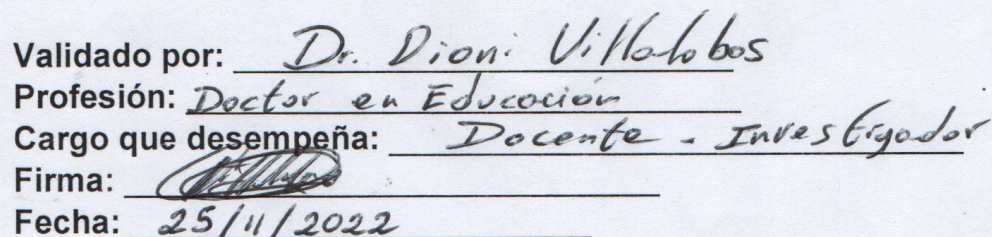 Validado por: Dr. Dioni Villalobos
Profesión: Doctor en Educación
Cargo que desempeña: Docente - Investigador
Firma:
Fecha: 25/11/2022